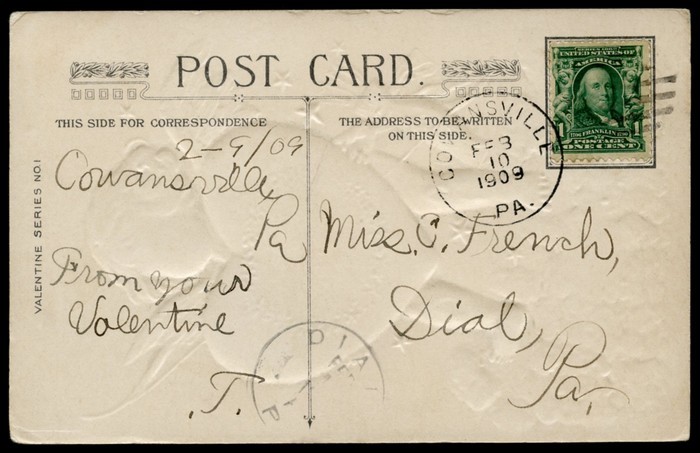 POST CARD.
THIS SIDE FOR CORRESPONDENCE
THE ADDRESS TO BE WRITTEN
ON THIS SIDE.
VALENTINE SERIES NO.1
2-9/09
Cowansville,
Pa
From your
Valentine
.T.
Miss. C. French,
Dial,
Pa.
COWANSVILLE
FEB
10
1909
PA.
UNITED STATES OF
AMERICA
FRANKLIN
1 1
POSTAGE
ONE CENT
DIAL